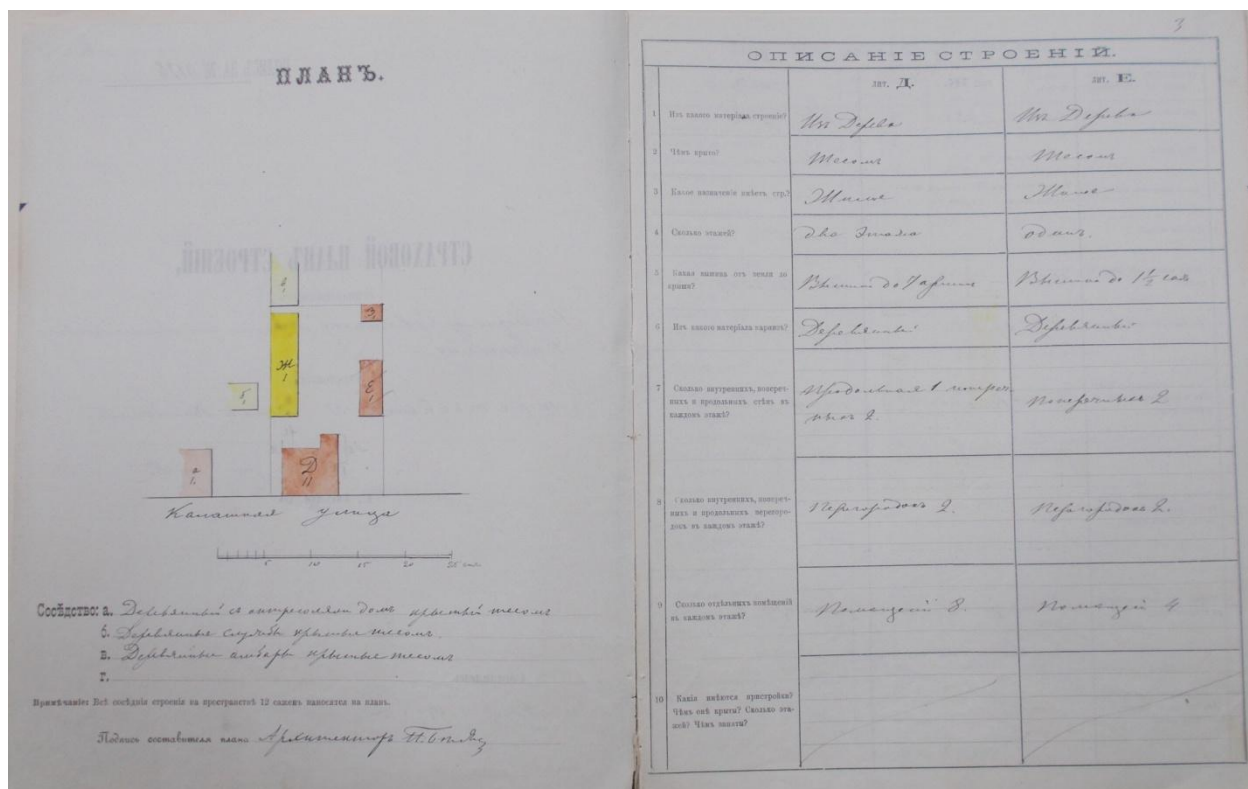 ПЛАНЪ.
в
1
З
1
Ж
1
Е
1
Б
1
а
1.
Д
II
Калашная улица
5 10 15 20 25 саж.
Сосѣдство: а. Деревянный съ антресолями домъ крытый тесомъ
б. Деревянные службы крытые тесомъ.
в. Деревянные амбары крытые тесомъ
г.
Примѣчаніе: Всѣ сосѣднія строенія на пространствѣ 12 саженъ наносятся на планъ.
Подпись составителя плана Архитекторъ
3
ОПИСАНІЕ СТРОЕНІЙ.
лит. Д. лит. Е.
1 Изъ какого матеріала строеніе? Изъ Дерева Изъ Дерева
2 Чѣмъ крыто? Тесомъ Тесомъ
3 Какое назначеніе имѣетъ стр.? Жилое Жилое
4 Сколько этажей? два этажа одинъ.
5 Какая вышина отъ земли до
крыши? Вышиной до Вышиной до 1½ саж
6 Изъ какого матеріала карнизъ? Деревянный Деревянный
7 Сколько внутреннихъ, попереч-
ныхъ и продольныхъ стѣнъ въ
каждомъ этажѣ? Продольная 1 попереч
ныхъ 2. Поперечныхъ 2
8 Сколько внутреннихъ, попереч-
ныхъ и продольныхъ перегоро-
докъ въ каждомъ этажѣ? Перегородокъ 2. Перегородокъ 2.
9 Сколько отдѣльныхъ помѣщеній
въ каждомъ этажѣ? Помѣщеній 8. Помѣщеній 4
10 Какія имѣются пристройки?
Чѣмъ онѣ крыты? Сколько эта-
жей? Чѣмъ заняты?